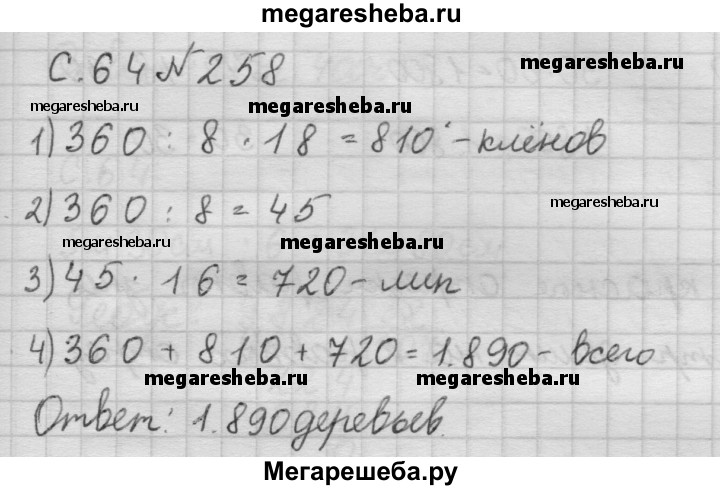 megaresheba.ru
с. 64 № 258
megaresheba.ru
megaresheba.ru megaresheba.ru
1) 360 : 8 · 18 = 810 - клёнов
2) 360 : 8 = 45
megaresheba.ru
megaresheba.ru megaresheba.ru
3) 45 · 16 = 720 - лип
4) 360 + 810 + 720 = 1.890 - всего
megaresheba.ru megaresheba.ru
Ответ: 1.890 деревьев.
Мегарешеба.ру